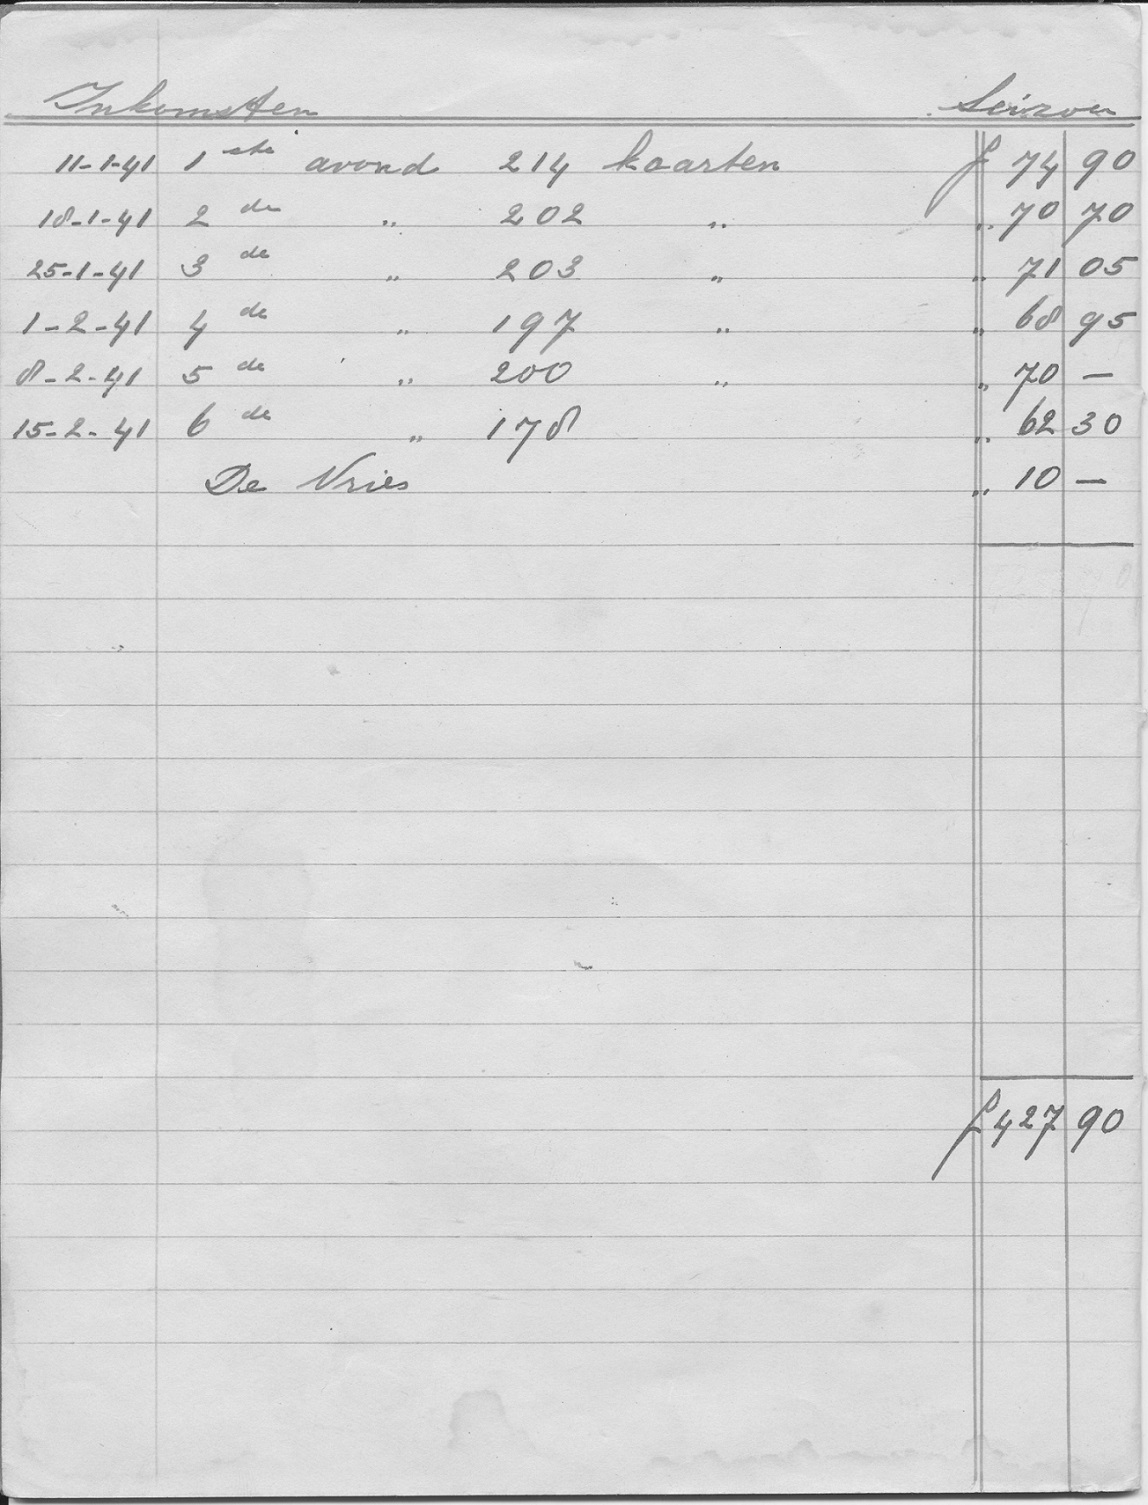 Inkomsten Seizoen
11-1-41 1ste avond 214 kaarten f 74 90
18-1-41 2de " 202 " " 70 70
25-1-41 3de " 203 " " 71 05
1-2-41 4de " 197 " " 68 95
8-2-41 5de " 200 " " 70 —
15-2-41 6de " 178 " 62 30
De Vries " 10 —
f 427 90